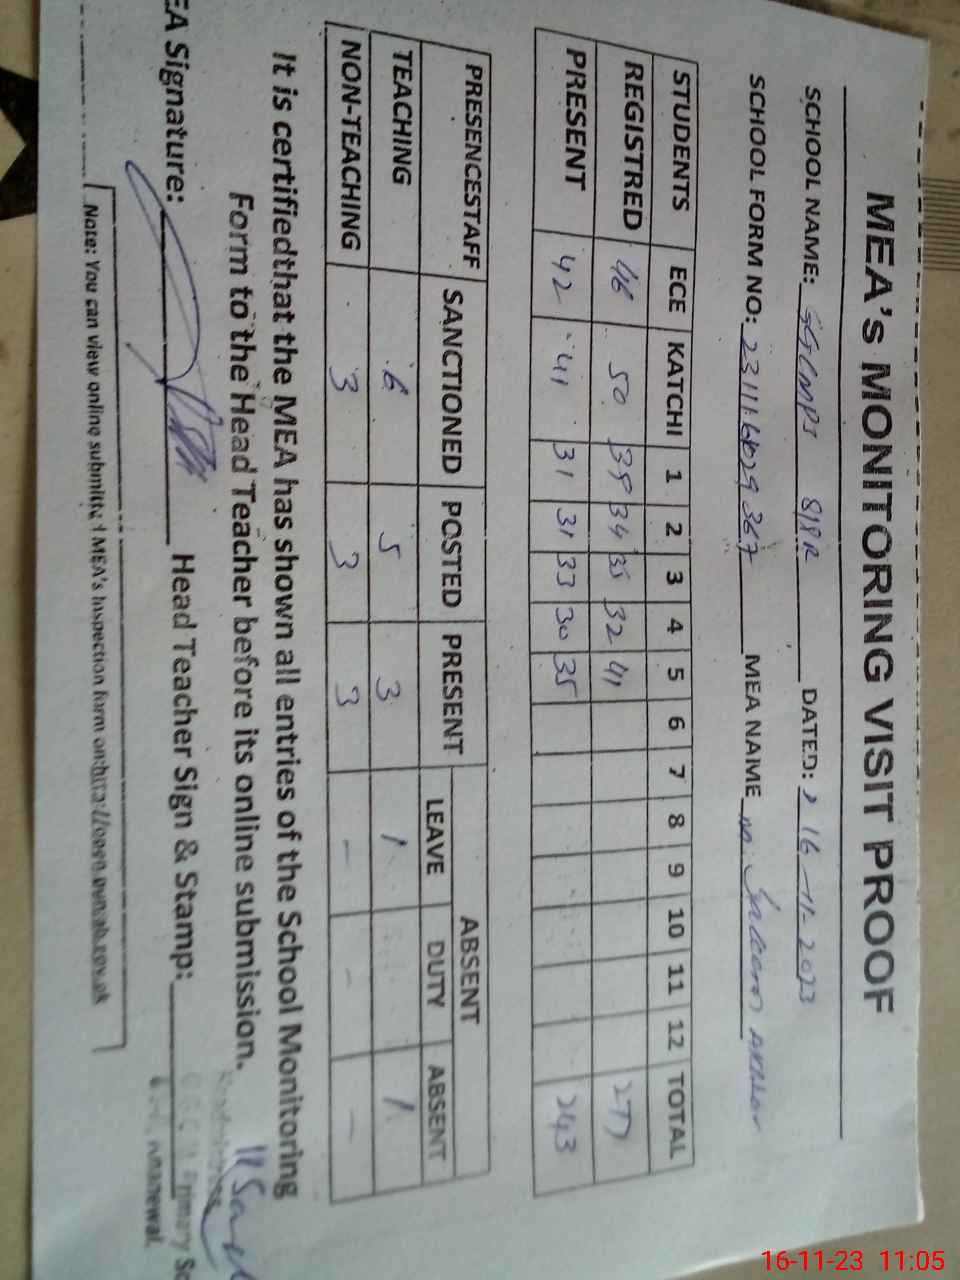 MEA's MONITORING VISIT PROOF
SCHOOL NAME: GGCMPS 81/1R DATED: 16-11-2023
SCHOOL FORM NO: MEA NAME M.
STUDENTS ECE KATCHI 1 2 3 4 5 6 7 8 9 10 11 12 TOTAL
REGISTRED 46 50 39 34 35 32 41 277
PRESENT 42 41 31 31 33 30 35 243
PRESENCESTAFF SANCTIONED POSTED PRESENT ABSENT
LEAVE DUTY ABSENT
TEACHING 6 5 3 1 1
NON-TEACHING 3 3 3 - - -
It is certifiedthat the MEA has shown all entries of the School Monitoring
Form to the Head Teacher before its online submission.
EA Signature: Head Teacher Sign & Stamp:
Primary Sc
Note: You can view online submitted MEA's Inspection form on:
16-11-23 11:05